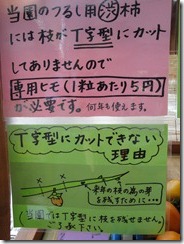 当園のつるし用渋柿
には枝がT字型にカット
してありませんので
専用ヒモ(1粒あたり5円)
が必要です。何年も使えます。
T字型にカットできない
理由
来年の枝の為の芽
を残すために…
当園ではT字型に枝を残せません。
ご了承下さい。